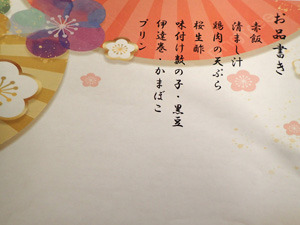 お品書き
赤飯
清まし汁
鶏肉の天ぷら
桜生酢
味付け数の子・黒豆
伊達巻・かまぼこ
プリン